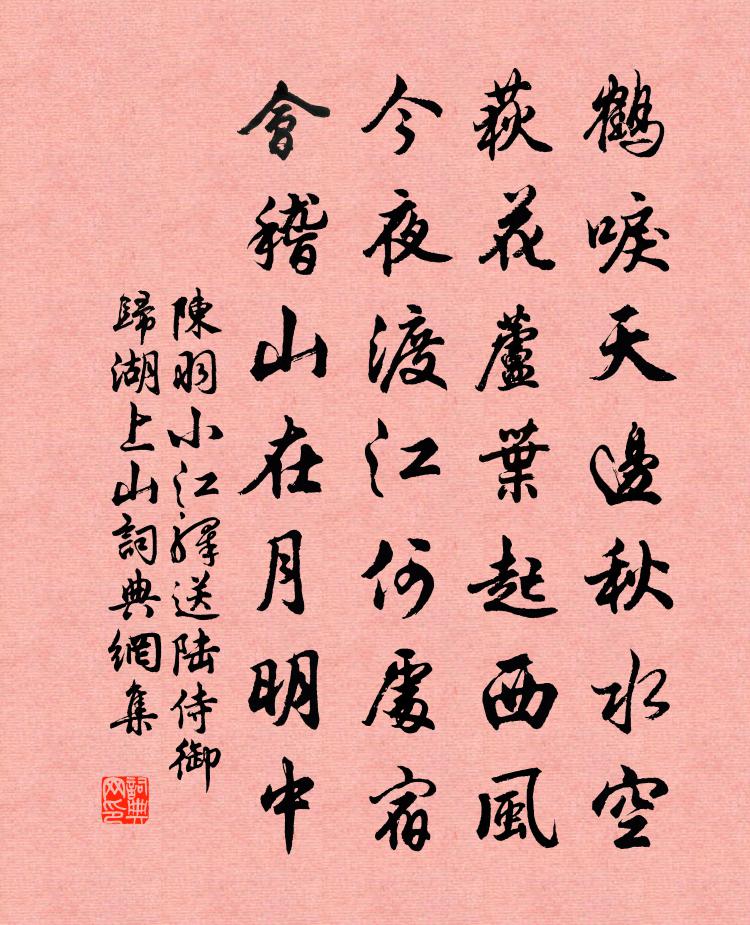 鶴唳天邊秋水空
荻花蘆葉起西風
今夜渡江何處宿
會稽山在月明中
陳羽小江驛送陸侍御
歸湖上山詞典網集
詞典
网印